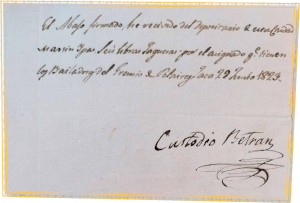 El Abajo firmado, he recivido del Depositario de esta Ciudad
Martin Ypas Seis libras Jaquesas por el asignado qe. tienen
los Bailadores del Gremio de Pelaires Jaca 29 Junio 1824.
Custodio Betran